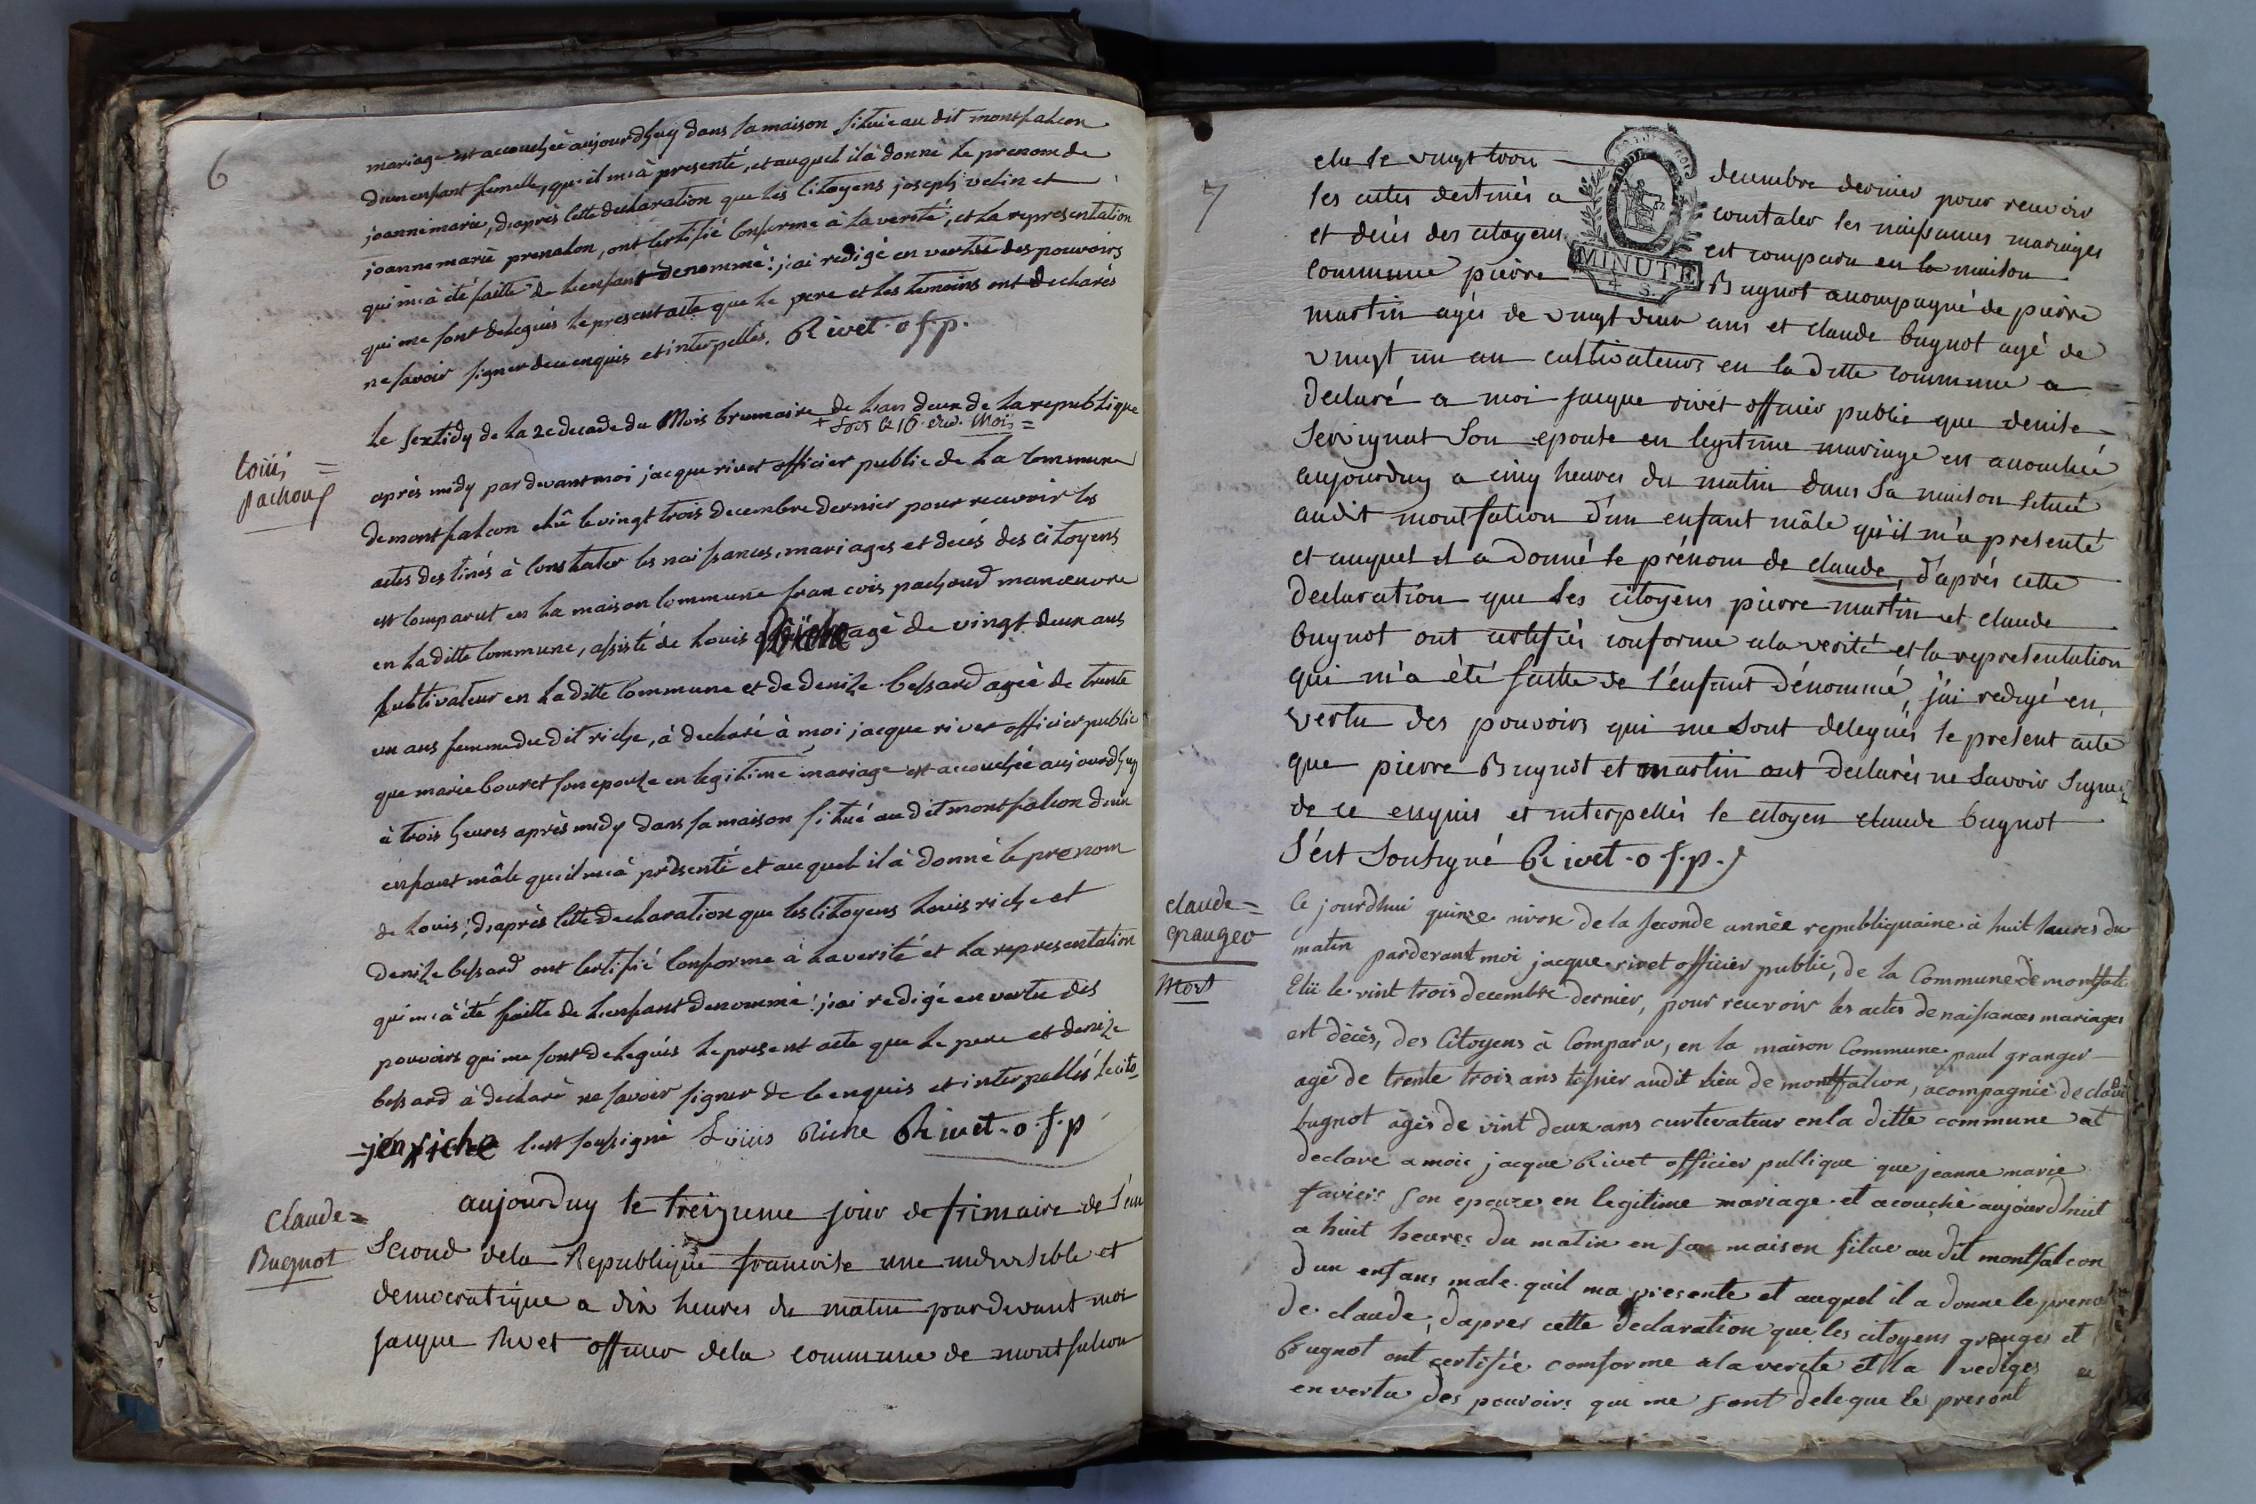 6
mariage est accouchée aujourdhuy dans sa maison située au dit montfalcon
d'un enfant femelle, qu'il m'a presenté, et auquel il à donné le prenom de
jeanne marie, d'après cette declaration que les citoyens joseph velin et
jeanne marie prenalon, ont certifié conforme à la verité, et la representation
qui m'a été faitte de l'enfant denommé: j'ai redigé en vertu des pouvoirs
qui me sont delegués le present acte que le pere et les temoins ont declarés
ne savoir signer de ce enquis et interpellés. Rivet. o f. p.
le sextidy de la 2e decade du Mois brumaire de l'an deux de la republique
+ soit le 16 dud. Mois =
Loüis =
pachoud
après midy par devant moi jacque rivet officier public de la commune
de montfalcon elû le vingt trois decembre dernier pour recevoir les
actes destinés à constater les naissances, mariages et decés des citoyens
est comparut en la maison commune francois pachoud manœuvre
en la ditte commune, assisté de louis Riche agé de vingt deux ans
cultivateur en la ditte commune et de denize bessard agée de trente
un ans femme du dit riche, à declaré à moi jacque rivet officier public
que marie bouvet son epouze en legitime mariage est accouchée aujourdhuy
à trois heures après midy dans sa maison situé au dit montfalcon d'un
enfant mâle qu'il m'à présenté et auquel il à donné le prenom
de louis; d'après cette declaration que les citoyens louis riche et
denize bessard ont certifié conforme à la verité et la representation
qui m'à été faitte de l'enfant denommé: j'ai redigé en vertu des
pouvoirs qui me sont delegués le present acte que le pere et denize
bessard à declaré ne savoir signer de ce enquis et interpellés le cito-
-jen riche s'est soussigné Loüis Riche Rivet. o. f. p
Claude =
Bugnot
aujourduy le treizieme jour de frimaire de l'an
Second de la Republique francoise une indivisible et
democratique a dix heures du matin pardevant moi
Jacque Rivet officier de la commune de montfalcon
7
elu le vingt trois decembre dernier pour recevoir
les actes destinés a constater les naissances mariages
et decés des citoyens est comparu en la maison
MINUTE
4 S.
commune pierre Bugnot acompagné de pierre
martin agés de vingt deux ans et claude bugnot agé de
vingt un an cultivateurs en la ditte commune a
declaré a moi jacque rivet officier public que denise
Servignat son epouse en legitime mariage est acouchée
aujourduy a cinq heures du matin dans sa maison située
audit montfalcon d'un enfant mâle qu'il m'a presenté
et auquel il a donné le prénom de claude, d'après cette
declaration que les citoyens pierre martin et claude
bugnot ont certifiés conforme a la verité et la representation
qui m'a été faitte de l'enfant dénommé, j'ai redigé en
vertu des pouvoirs qui me sont delegués le present acte
que pierre Bugnot et martin ont declarés ne savoir signer
de ce enquis et interpellés le citoyen claude bugnot
s'est sousigné Rivet. o f. p.
claude =
granger
Mort
Ce jourdhui quinze nivose de la seconde année republiquaine à huit heures du
matin parderant moi jacque rivet officier public, de la Commune de montfalc
Elü le vint trois decembre dernier, pour recevoir les actes de naissances mariages
est décès, des Citoyens à Comparu, en la maison Commune paul granger
agé de trente trois ans tissier audit lieu de montfalcon, acompagnié de claud
bugnot agés de vint deux ans curtivateur en la ditte commune at
declare a moi jacque Rivet officier publique que jeanne marie
favier son epouze en legitime mariage et acouché aujourdhuit
a huit heures du matin en sa maison situe au dit montfalcon
d'un enfans male quil ma presente et auquel il a donne le preno
de claude, dapres cette declaration que les citoyens granger et
Bugnot ont certifié comforme a la verete et la rediges
en vertu des pouvoirs que me sont deleque le presant